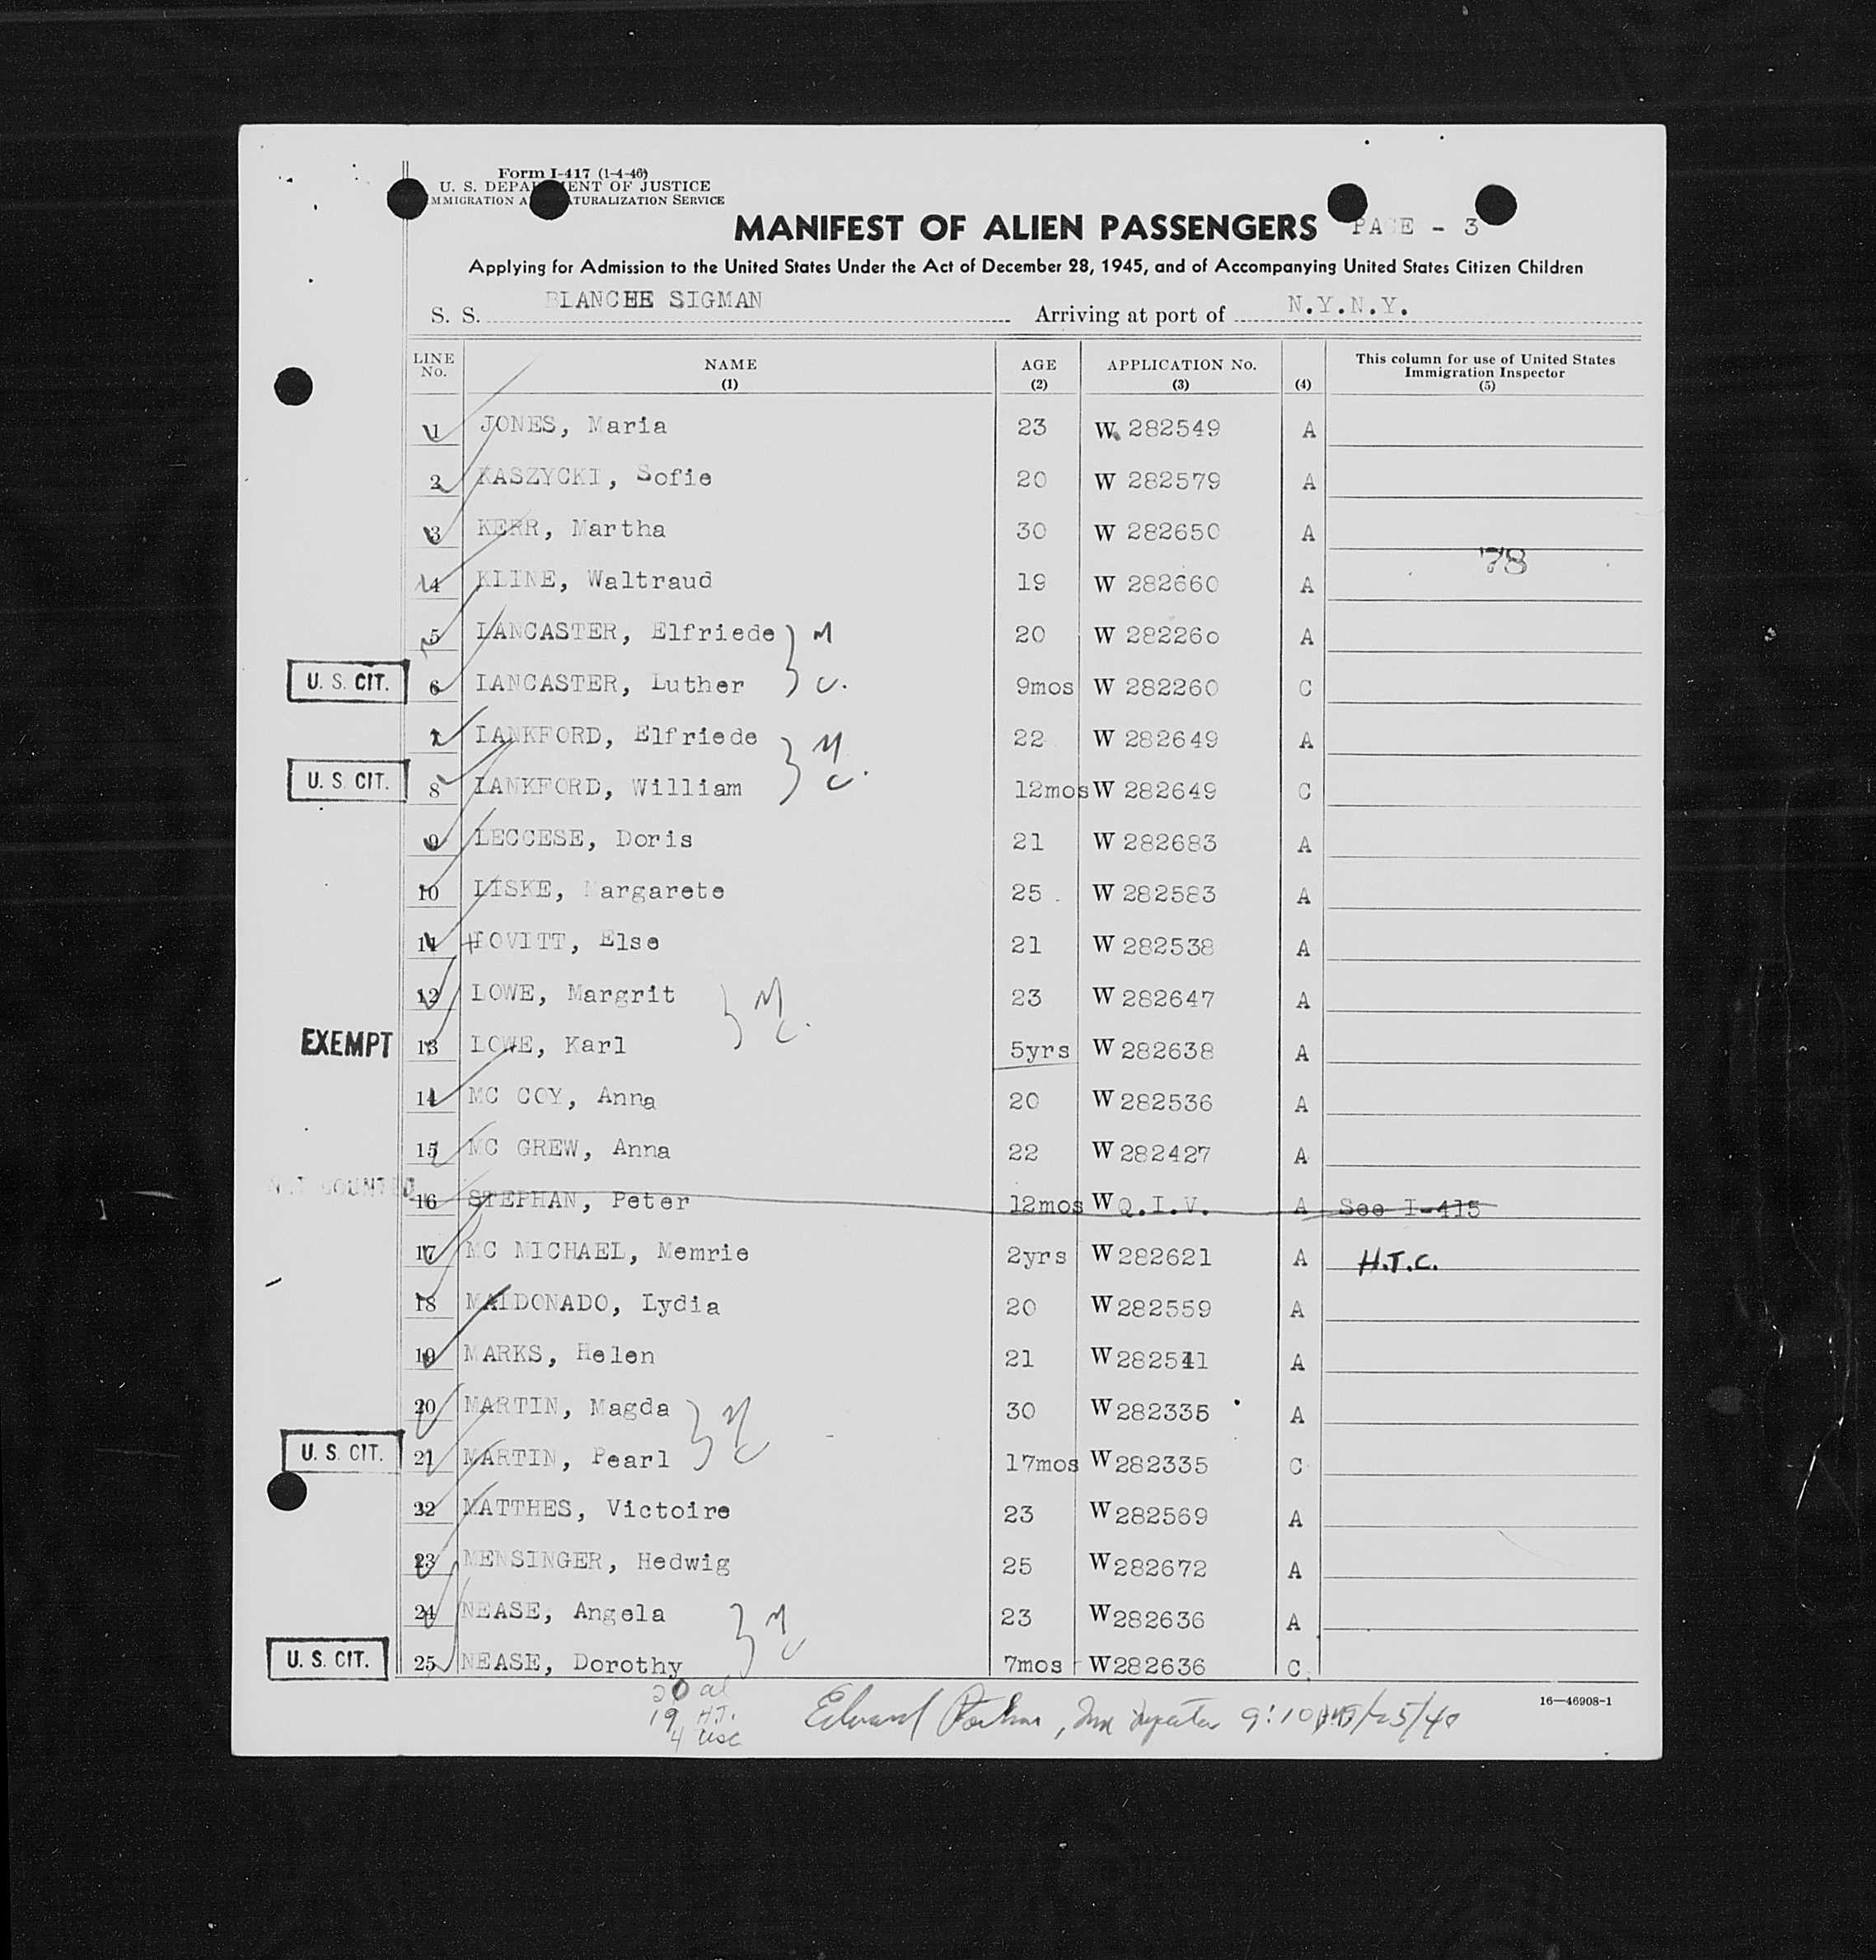 Form I-417 (1-4-46)
U. S. DEPA MENT OF JUSTICE
MMIGRATION A TURALIZATION SERVICE
MANIFEST OF ALIEN PASSENGERS PA E - 3
Applying for Admission to the United States Under the Act of December 28, 1945, and of Accompanying United States Citizen Children
S. S. BLANCHE SIGMAN Arriving at port of N.Y.N.Y.
LINE No. NAME (1) AGE (2) APPLICATION No. (3) (4) This column for use of United States Immigration Inspector (5)
1 JONES, Maria 23 W 282549 A
2 KASZYCKI, Sofie 20 W 282579 A
3 KERR, Martha 30 W 282650 A
78
4 KLINE, Waltraud 19 W 282660 A
5 LANCASTER, Elfriede } M 20 W 282260 A
U. S. CIT. 6 LANCASTER, Luther C. 9mos W 282260 C
7 LANKFORD, Elfriede } M 22 W 282649 A
U. S. CIT. 8 LANKFORD, William C. 12mos W 282649 C
9 LECCESE, Doris 21 W 282683 A
10 LISKE, Margarete 25 W 282583 A
11 LOVITT, Else 21 W 282538 A
12 LOWE, Margrit } M 23 W 282647 A
EXEMPT 13 LOWE, Karl C. 5yrs W 282638 A
14 MC COY, Anna 20 W 282536 A
15 MC GREW, Anna 22 W 282427 A
NOT COUNTED 16 STEPHAN, Peter 12mos W Q.I.V. A See I-415
17 MC MICHAEL, Memrie 2yrs W 282621 A H.T.C.
18 MALDONADO, Lydia 20 W 282559 A
19 MARKS, Helen 21 W 282541 A
20 MARTIN, Magda } M 30 W 282335 A
U. S. CIT. 21 MARTIN, Pearl C 17mos W 282335 C
22 MATTHES, Victoire 23 W 282569 A
23 MENSINGER, Hedwig 25 W 282672 A
24 NEASE, Angela } M 23 W 282636 A
U. S. CIT. 25 NEASE, Dorothy C 7mos W 282636 C
20 al
19 HT.
4 usc
Edward 9:10
16—46908-1